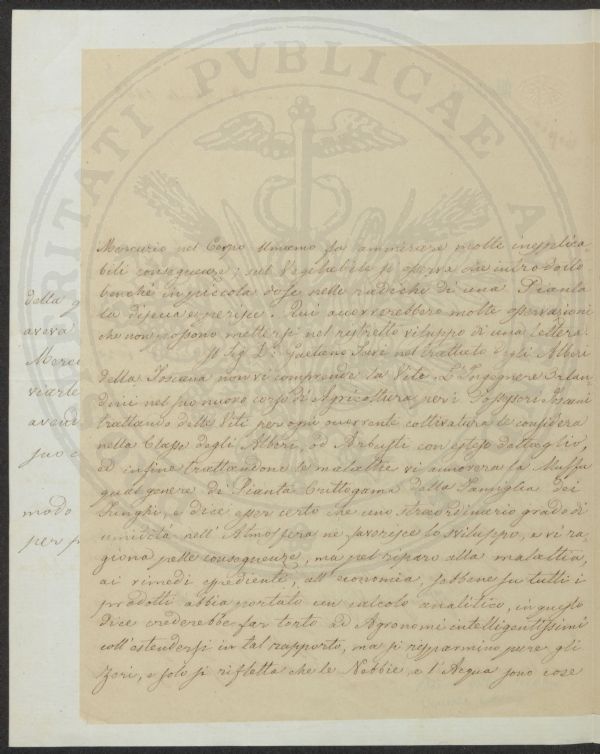 PROSPERITATI PVBLICAE AV
Mercurio nel Corpo Umano fa ammirare molte inesplica-
bili conseguenze; sul Vegetabile si osserva che introdotto
benchè in piccola dose nelle radiche di una Pianta
la disecca e perisce. Qui accorrerebbero molte osservazioni
che non possono mettersi nel ristretto viluppo di una lettera.
Il Sig. D. Gaetano Savi nel trattato degli Alberi
della Toscana non vi comprende la Vite. L'Ingegnere
nel suo nuovo corso di Agricoltura per i Toscani
trattando delle Viti per ogni occorrente coltivatura le considera
nella Classe degli Alberi, od Arbusti con esteso dettaglio,
ed infine trattandone le malattie vi annovera la Muffa
qual genere di Pianta Crittogama della Famiglia dei
Funghi, e dice esser certo che uno straordinario grado di
umidità nell'Atmosfera ne favorisce lo sviluppo, e vi ra-
giona nelle conseguenze, ma pel riparo alla malattia,
ai rimedi espediente, all'economia, sebbene su tutti i
prodotti abbia portato un calcolo analitico, in questo
dice crederebbe far torto ad Agronomi intelligentissimi
coll'estendersi in tal rapporto, ma si risparmino pure gli
Zeri, e solo si rifletta che le Nebbie, e l'Acqua sono cose
della
aveva
Merc
viarle
avend
suo
modo
per